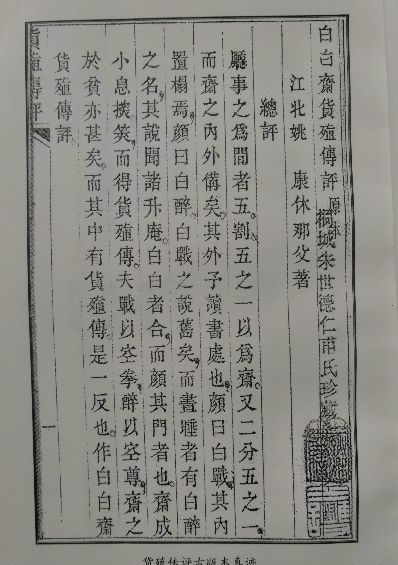 白白齋貨殖傳評 原本
桐城朱世德仁甫氏珍藏
江北姚 康休那父著
總評
廳事之爲間者五割五之一以爲齋又二分五之一
而齋之內外備矣其外予讀書處也顏曰白戰其內
置榻焉顏曰白醉白戰之說舊矣而晝睡者有白醉
之名其說聞諸升庵白白者合而顏其門者也齋成
小息撫笑而得貨殖傳夫戰以空拳醉以空尊齋之
於貧亦甚矣而其中有貨殖傳是一反也作白白齋
貨殖傳評
貨殖傳評
一
貨殖傳評古版本真跡